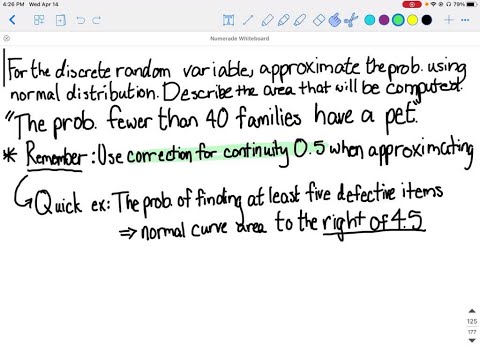 4:26 PM Wed Apr 14
79%
Numerade Whiteboard
For the discrete random variable, approximate the prob. using
normal distribution. Describe the area that will be computed.
"The prob. fewer than 40 families have a pet."
* Remember: Use correction for continuity 0.5 when approximating
Quick ex: The prob. of finding at least five defective items
⇒ normal curve area to the right of 4.5
125
177